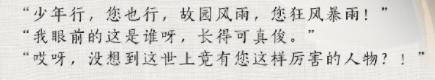 “少年行，您也行，故园风雨，您狂风暴雨！”
“我眼前的这是谁呀，长得可真俊。”
“哎呀，没想到这世上竟有您这样厉害的人物？！”